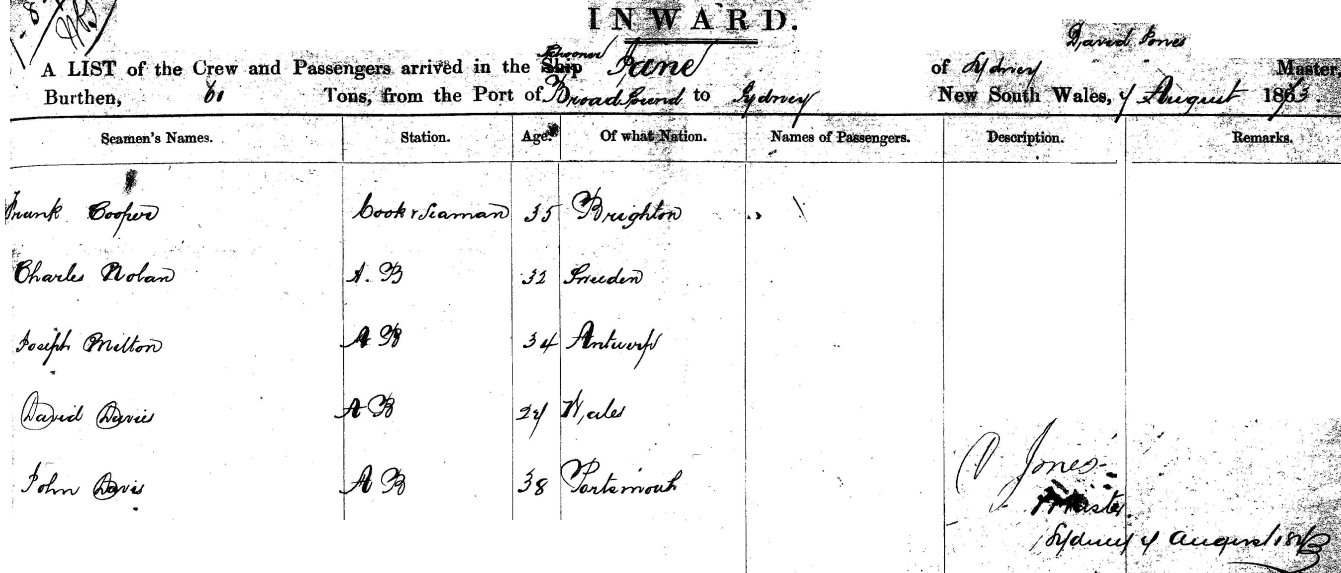 INWARD.
David Jones
Schooner
A LIST of the Crew and Passengers arrived in the Ship Jane of Sydney Master,
Burthen, 61 Tons, from the Port of Broad Sound to Sydney New South Wales, 4 August 1863.
Seamen's Names. Station. Age. Of what Nation. Names of Passengers. Description. Remarks.
Frank Cooper Cook & Seaman 35 Brighton
Charles Nolan A. B 32 Sweden
Joseph Milton A B 34 Antwerp
David Davis A B 24 Wales
John Davis A B 38 Portsmouth
D Jones
Master
Sydney 4 August